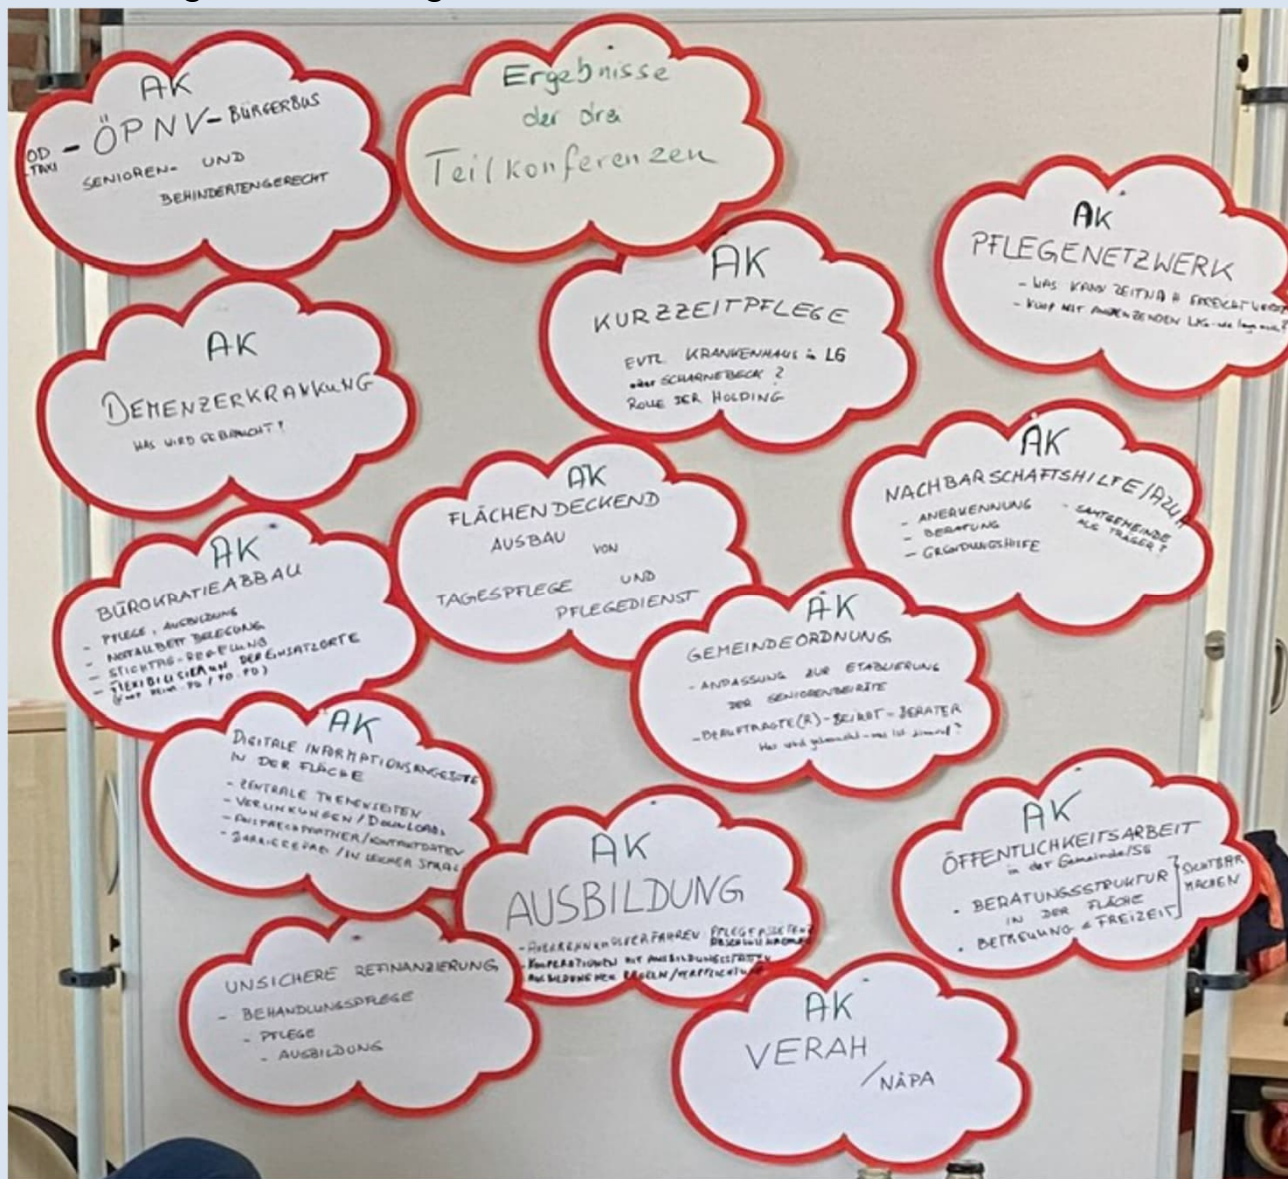 AK
- ÖPNV - BÜRGERBUS
OD
TAXI
SENIOREN- UND
BEHINDERTENGERECHT
Ergebnisse
der drei
Teilkonferenzen
AK
PFLEGENETZWERK
- WAS KANN ZEITNAH ERREICHT
- KOOP MIT ANGRENZENDEN LKG
AK
KURZZEITPFLEGE
EVTL. KRANKENHAUS in LG
oder SCHARNEBECK ?
ROLLE DER HOLDING
AK
DEMENZERKRANKUNG
WAS WIRD GEBRAUCHT?
AK
NACHBARSCHAFTSHILFE/AZUA
- ANERKENNUNG
- BERATUNG
- GRÜNDUNGSHILFE
- SAMTGEMEINDE
ALS TRÄGER?
AK
FLÄCHENDECKEND
AUSBAU VON
TAGESPFLEGE UND
PFLEGEDIENST
AK
BÜROKRATIEABBAU
- PFLEGE, AUSBILDUNG
- NOTFALLBETT BELEGUNG
- STICHTAG-REGELUNG
- FLEXIBILISIERUNG DER EINSATZORTE
AK
GEMEINDEORDNUNG
- ANPASSUNG ZUR ETABLIERUNG
DER SENIORENBEIRÄTE
- BEAUFTRAGTE(R)-BEIRAT-BERATER
Was wird gebraucht - was ist sinnvoll?
AK
DIGITALE INFORMATIONSANGEBOTE
IN DER FLÄCHE
- ZENTRALE THEMENSEITEN
- VERLINKUNGEN/DOWNLOADS
- ANSPRECHPARTNER/KONTAKTDATEN
- BARRIEREFREI/IN LEICHER SPRAC
AK
AUSBILDUNG
- ANERKENNUNGSVERFAHREN: PFLEGEASSISTENZ
- KOOPERATIONEN MIT AUSBILDUNGSSTÄTTEN
AK
ÖFFENTLICHKEITSARBEIT
in der Gemeinde/SG
· BERATUNGSSTRUKTUR
IN DER FLÄCHE
· BETREUUNG & FREIZEIT
SICHTBAR
MACHEN
UNSICHERE REFINANZIERUNG
- BEHANDLUNGSPFLEGE
- PFLEGE
- AUSBILDUNG
AK
VERAH
/NÄPA